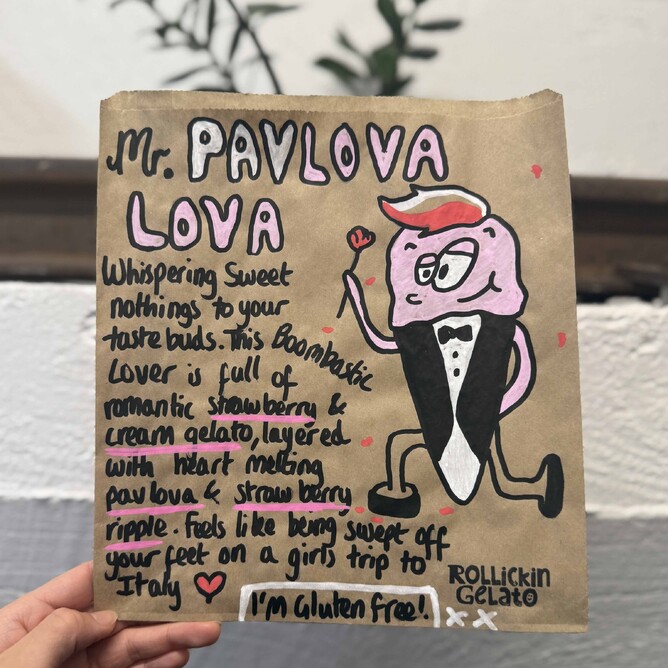 Mr. PAVLOVA
LOVA
Whispering Sweet
nothings to your
taste buds. This Boombastic
Lover is full of
romantic strawberry &
cream gelato, layered
with heart melting
pavlova & strawberry
ripple. Feels like being swept off
your feet on a girls trip to
Italy
I'm Gluten free!
xx
ROLLICKIN
GELATO